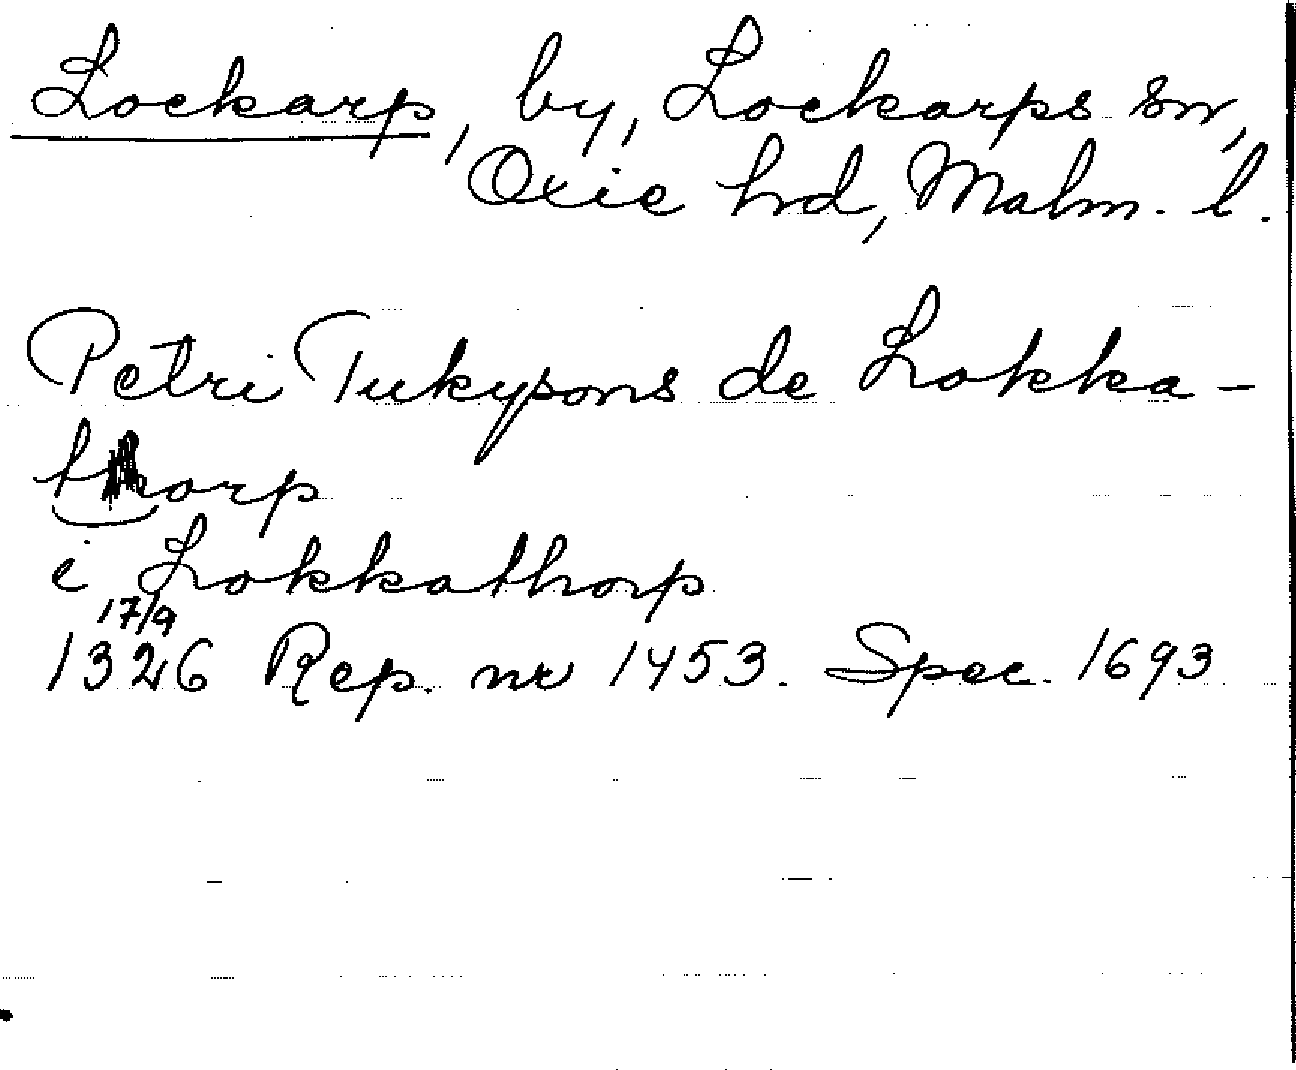 Lockarp, by, Lockarps sn,
Oxie hrd, Malm. l.
Petri Tukysons de Lokka-
torp
i Lokkathorp
17/9
1326 Rep. nr 1453. Spec. 1693